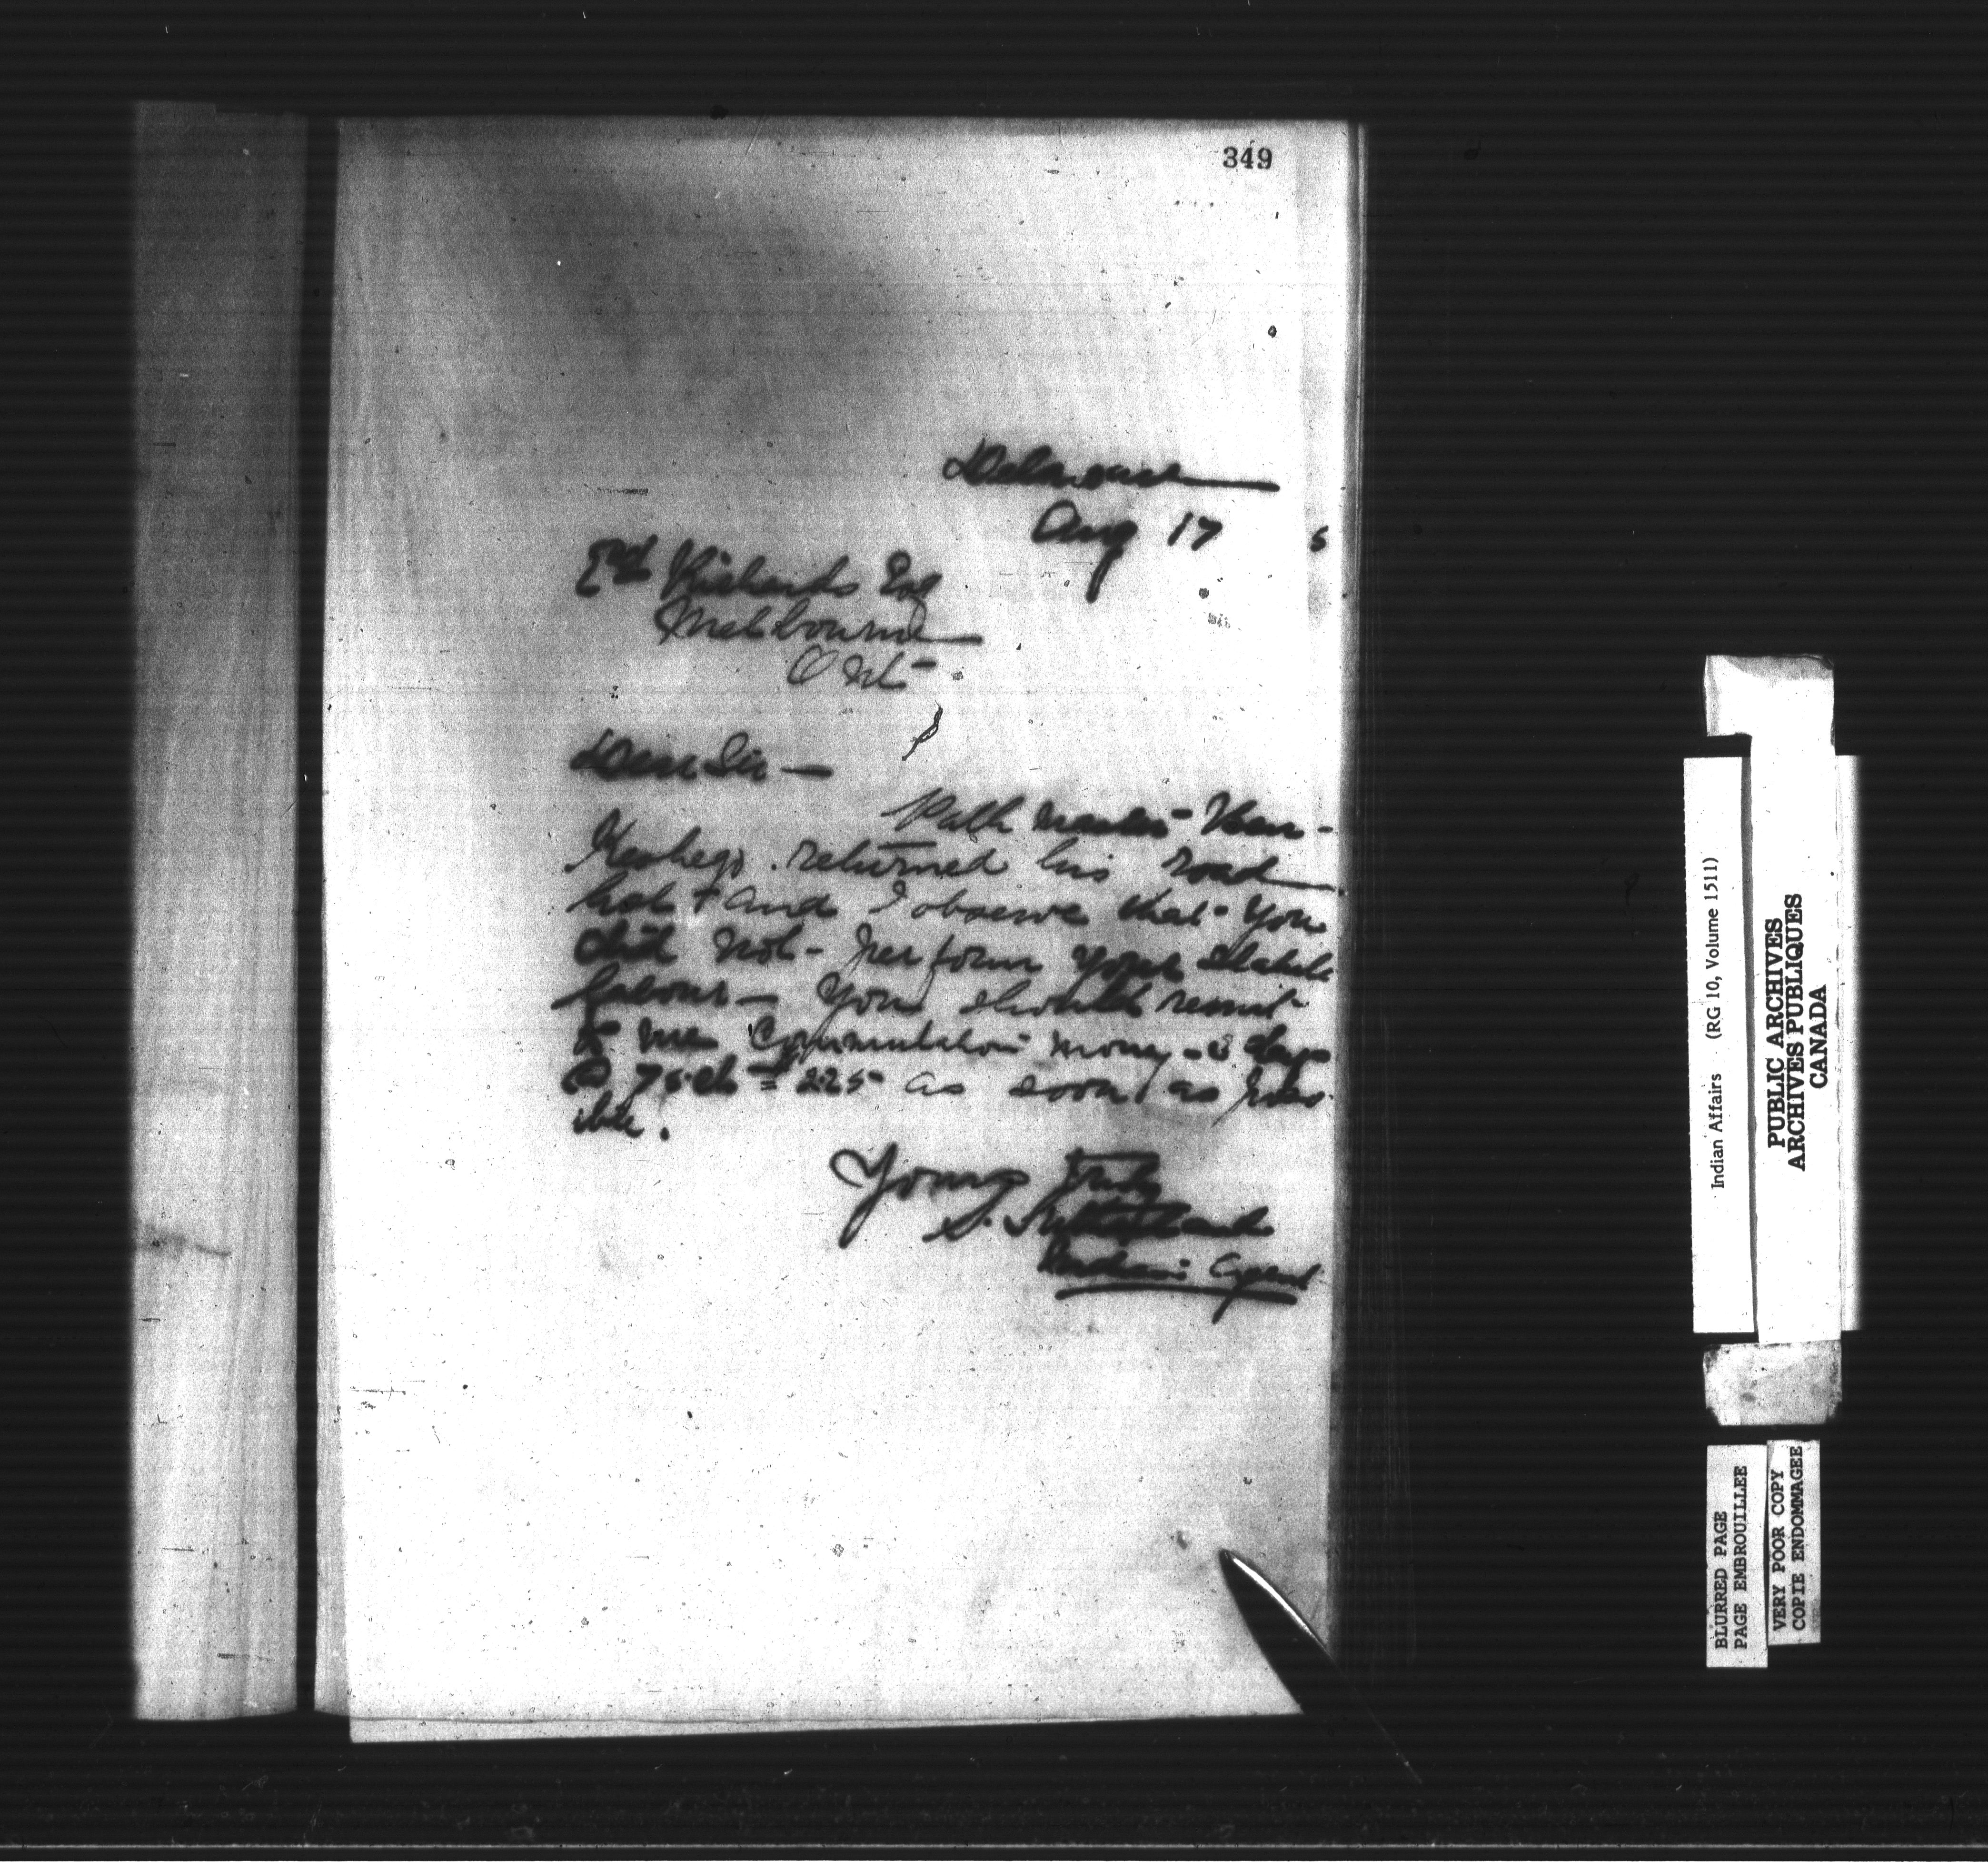 349
Delaware
Aug 17 5
Ed Richards Esq
Melbourne
Ont
Dear Sir —
Path Master
returned his road
list + and I observe that you
did not perform your Statute
labour — You should remit
to me Commutation money - 3 days
@ 75.cts = $2.25 as soon as poss
ible.
Yours Truly
S. Sutherland
Indian Agent
Indian Affairs (RG 10, Volume 1511)
PUBLIC ARCHIVES
ARCHIVES PUBLIQUES
CANADA
BLURRED PAGE
PAGE EMBROUILLEE
VERY POOR COPY
COPIE ENDOMMAGEE